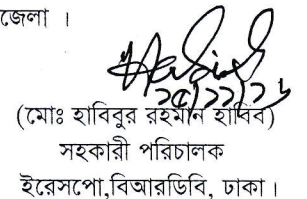 জেলা ।
(মোঃ হাবিবুর রহমান হাবিব)
সহকারী পরিচালক
ইরেসপো,বিআরডিবি, ঢাকা।